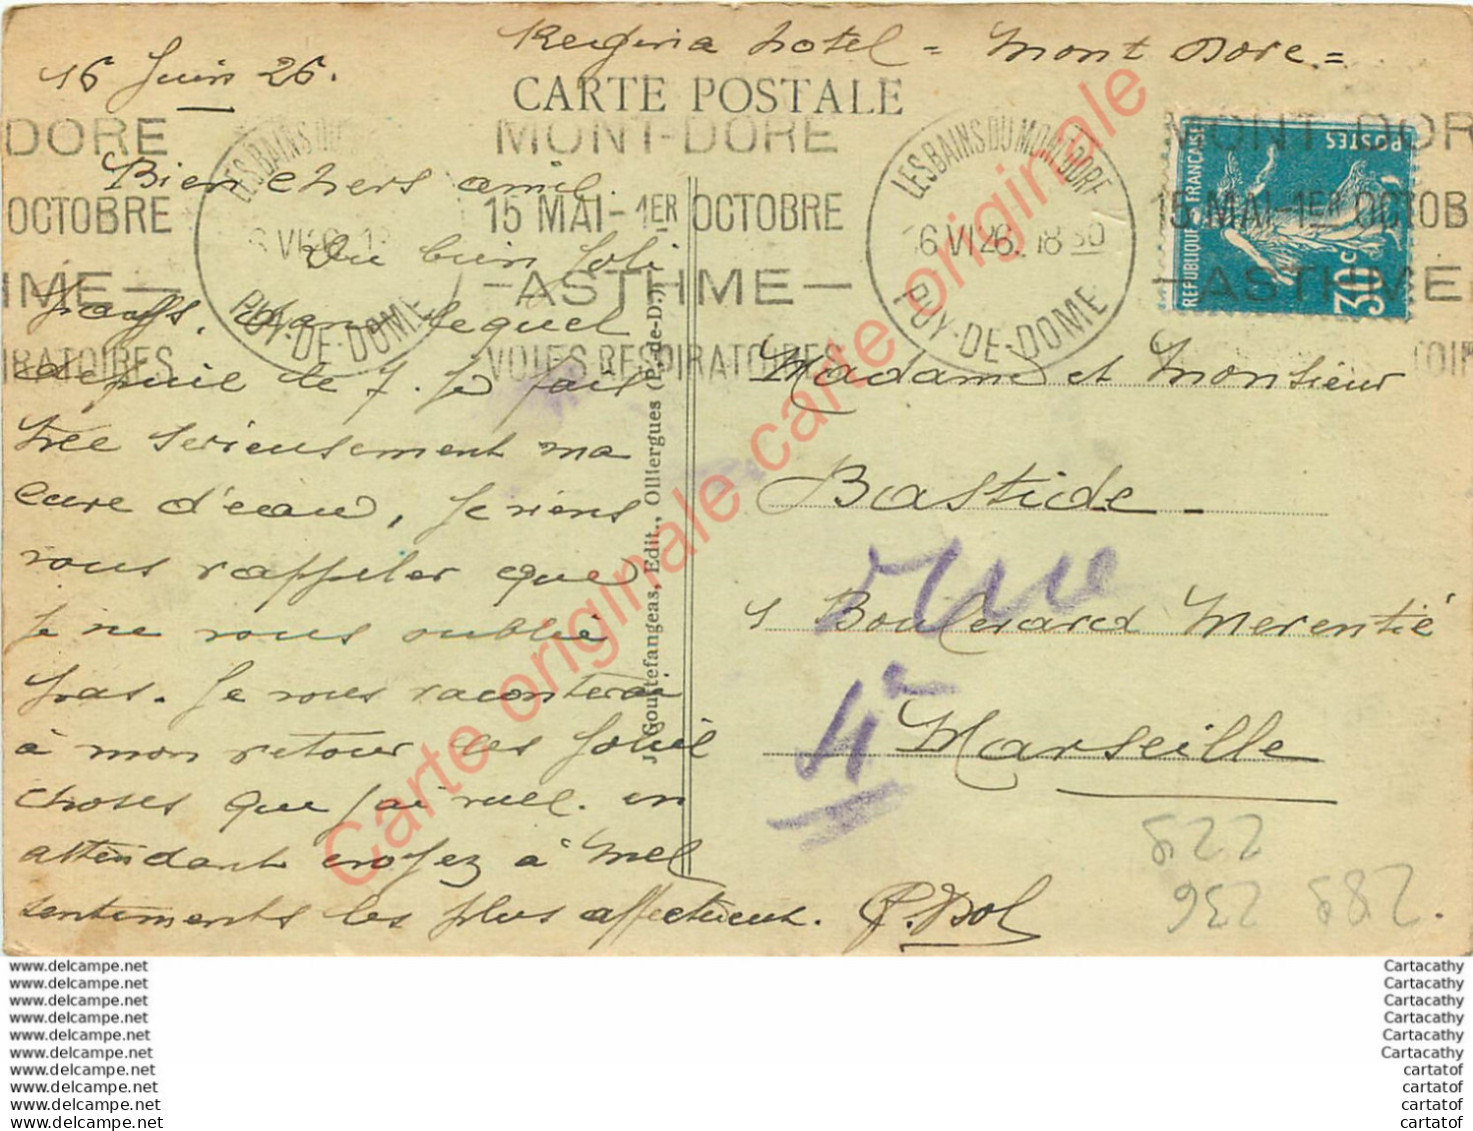 16 Juin 26.
Regina hotel = Mont Dore =
CARTE POSTALE
DORE
OCTOBRE
IME —
IRATOIRES
LES BAINS DU
PUY-DE-DOME
MONT-DORE
15 MAI - 1ER OCTOBRE
— ASTHME —
VOIES RESPIRATOIRES
LES BAINS DU MONT DORE
16 VI 26. 18 30
PUY-DE-DOME
MONT-DOR
15 MAI-1ER OCTOB
— ASTHME
REPUBLIQUE FRANÇAISE
POSTES
30c
Bien chers amis.
Du bien joli
pays, dans lequel
depuis le 7. Je fais
tres serieusement ma
cure d'eau, je viens
vous rappeler que
je ne vous oublie
pas. Je vous raconterai
à mon retour les jolies
choses que j'ai vues. en
attendant croyez à mes
sentiments les plus affectueux.
J. Gouttefangeas, Edit., Olliergues (P.-de-D.)
Madame et Monsieur
Bastide -
1 Boulevard Merentié
Marseille
rue
4e
522
236 582.
Carte originale carte originale carte originale
www.delcampe.net
www.delcampe.net
www.delcampe.net
www.delcampe.net
www.delcampe.net
www.delcampe.net
www.delcampe.net
www.delcampe.net
www.delcampe.net
www.delcampe.net
Cartacathy
Cartacathy
Cartacathy
Cartacathy
Cartacathy
Cartacathy
cartatof
cartatof
cartatof
cartatof